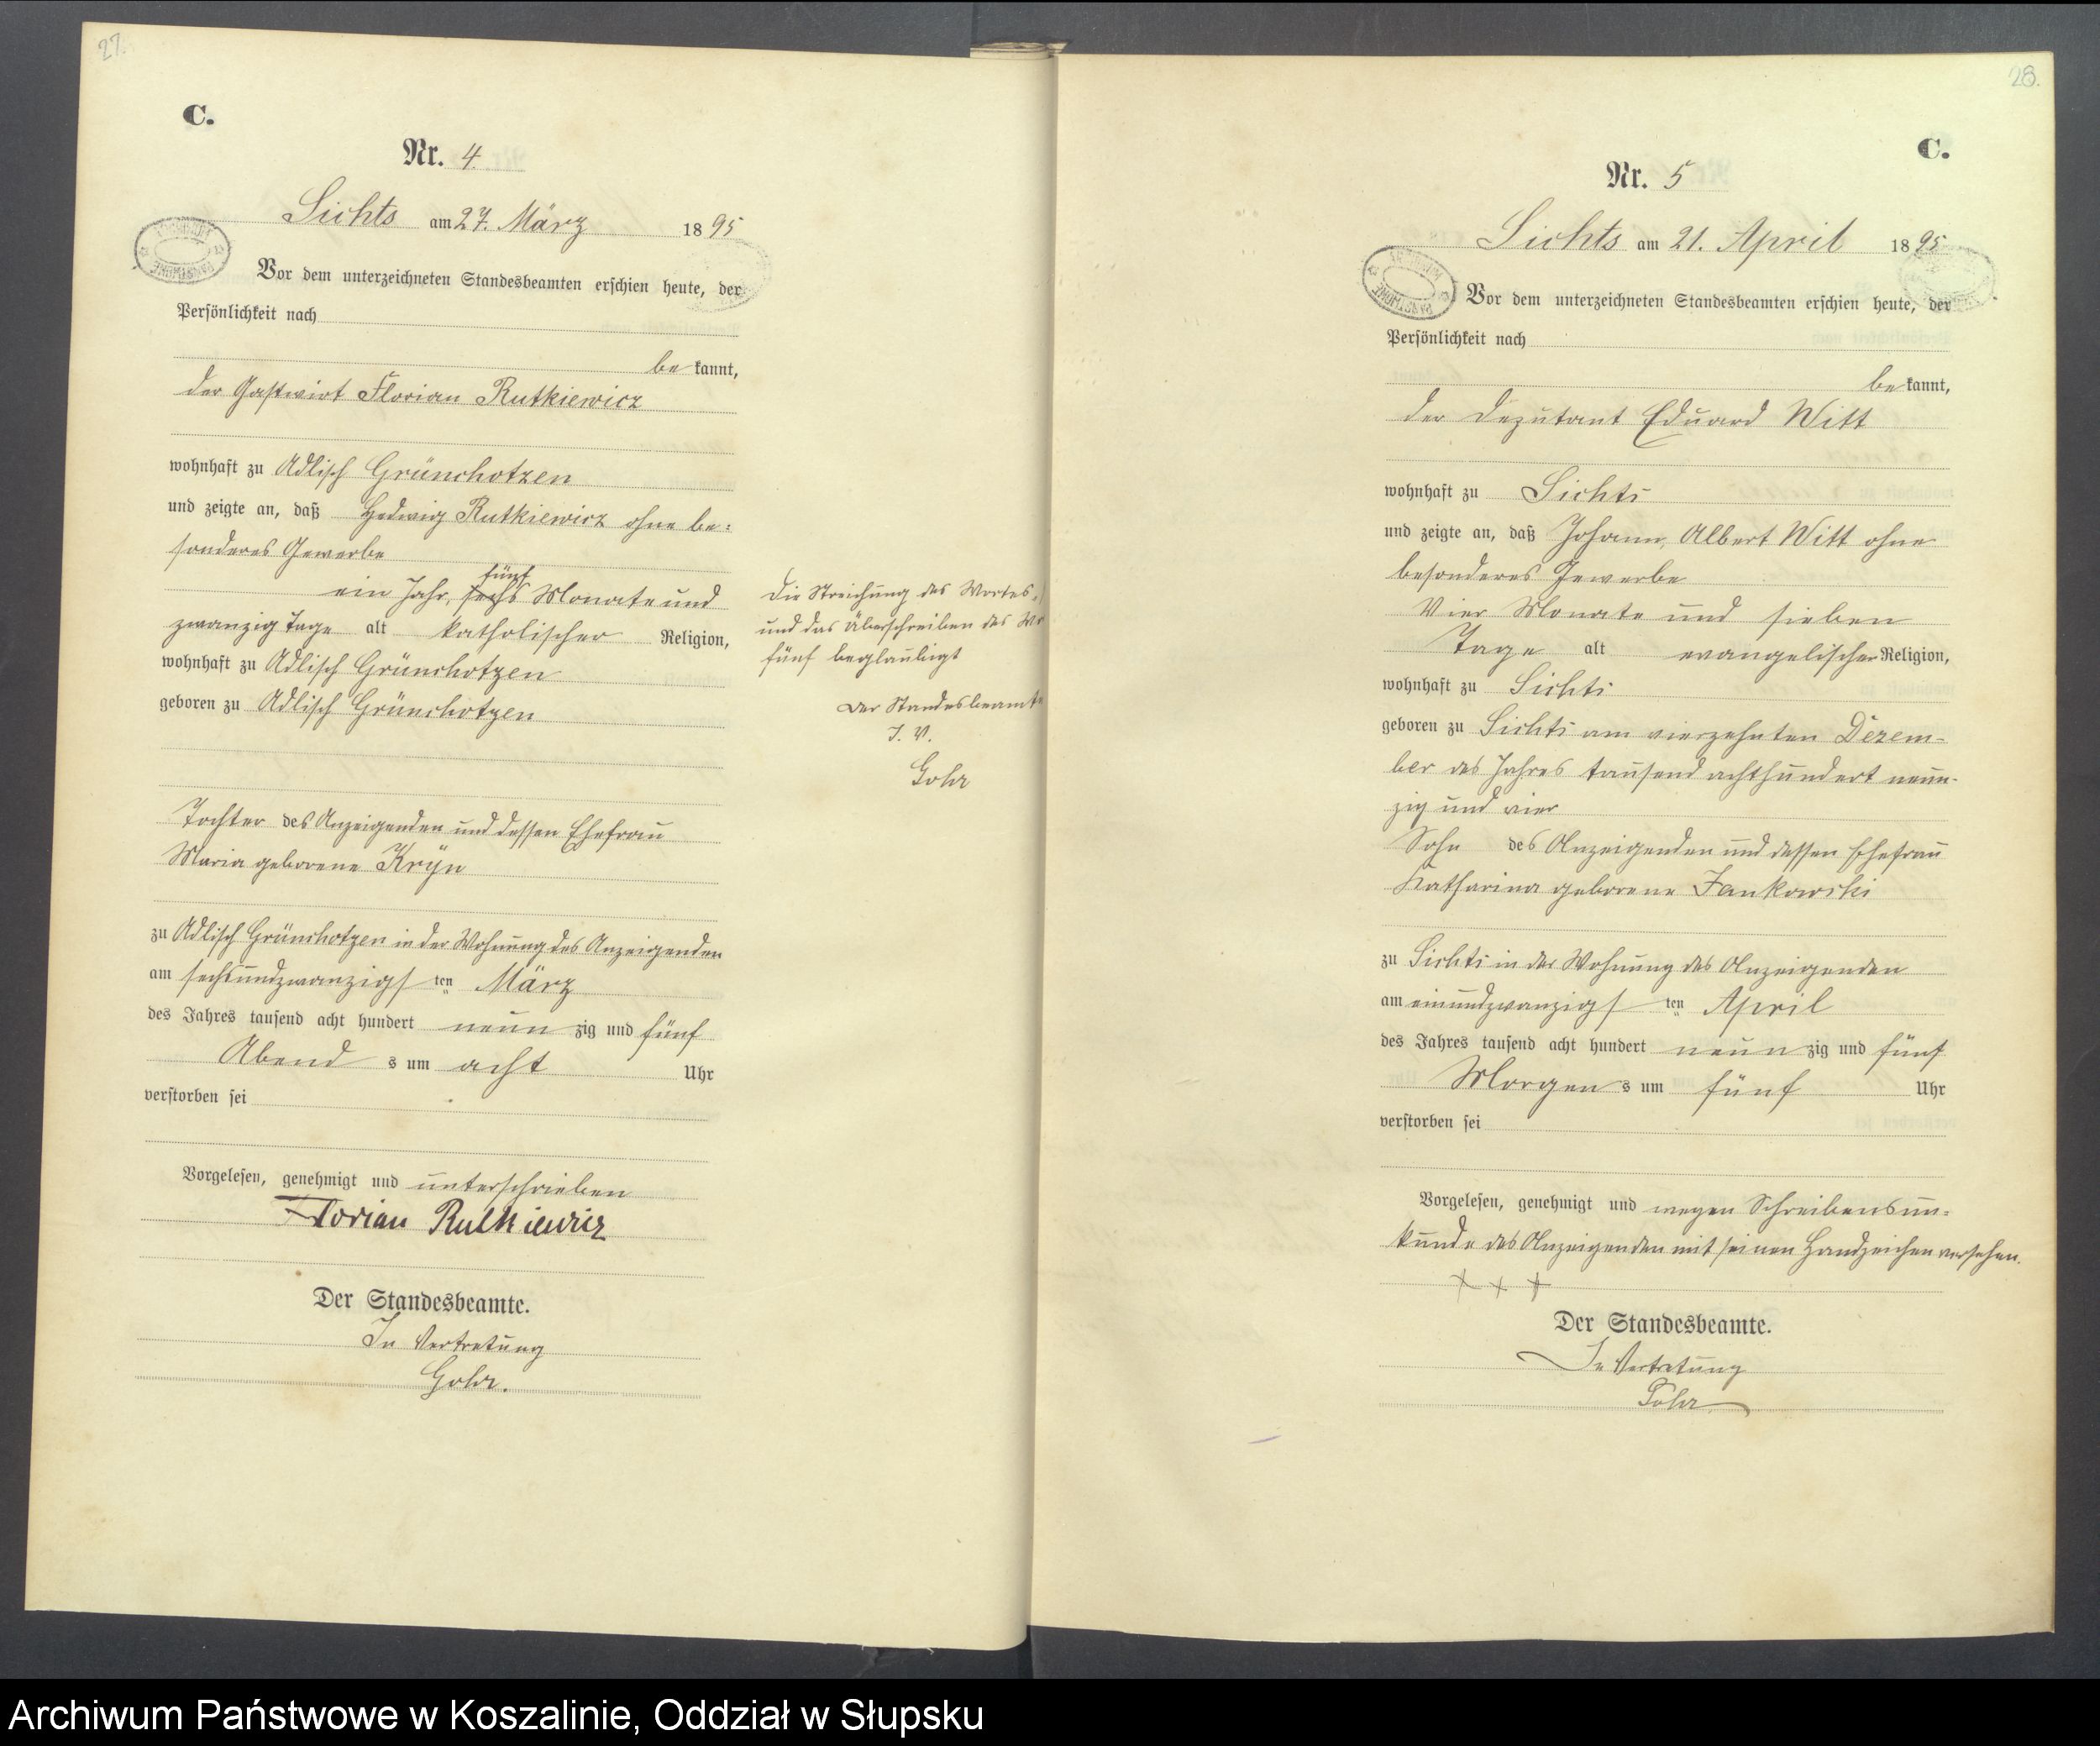 27.
C.
Nr. 4
Sichts am 27. März 1895
Vor dem unterzeichneten Standesbeamten erschien heute, der
Persönlichkeit nach
be kannt,
der Gastwirt Florian Rutkiewicz
wohnhaft zu Adlisch Grünchotzen
und zeigte an, daß Hedwig Rutkiewicz ohne be=
sonderes Gewerbe
fünf
ein Jahr, sechs Monate und
zwanzig Tage alt katholischer Religion,
wohnhaft zu Adlisch Grünchotzen
geboren zu Adlisch Grünchotzen
Tochter des Anzeigenden und dessen Ehefrau
Maria geborene Kryn
zu Adlisch Grünchotzen in der Wohnung des Anzeigenden
am sechsundzwanzigsten März
des Jahres tausend acht hundert neunzig und fünf
Abends um acht Uhr
verstorben sei
Vorgelesen, genehmigt und unterschrieben
Florian Rutkiewicz
Der Standesbeamte.
In Vertretung
Gohr.
Die Streichung des Wortes
und das Überschreiben des
fünf beglaubigt
Der Standesbeamte
J. V.
Gohr
28.
C.
Nr. 5
Sichts am 21. April 1895
Vor dem unterzeichneten Standesbeamten erschien heute, der
Persönlichkeit nach
be kannt,
der Deputant Eduard Witt
wohnhaft zu Sichts
und zeigte an, daß Johann Albert Witt ohne
besonderes Gewerbe
Vier Monate und sieben
Tage alt evangelischer Religion,
wohnhaft zu Sichts
geboren zu Sichts am vierzehnten Dezem-
ber des Jahres tausend achthundert neun-
zig und vier
Sohn des Anzeigenden und dessen Ehefrau
Katharina geborene Jankowski
zu Sichts in der Wohnung des Anzeigenden
am einundzwanzigsten April
des Jahres tausend acht hundert neunzig und fünf
Morgens um fünf Uhr
verstorben sei
Vorgelesen, genehmigt und wegen Schreibensun=
kunde des Anzeigenden mit seinen Handzeichen versehen.
+ + +
Der Standesbeamte.
In Vertretung
Gohr
Archiwum Państwowe w Koszalinie, Oddział w Słupsku